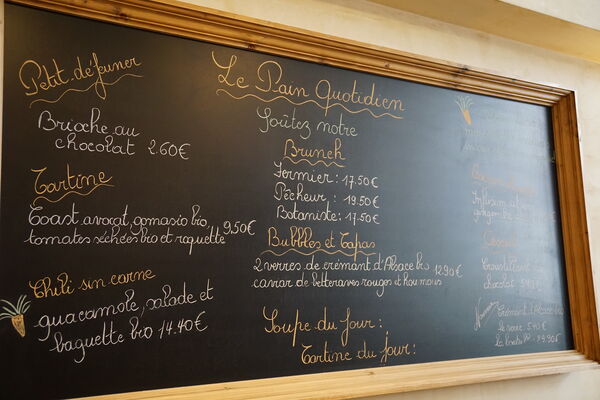 Petit déjeuner
Brioche au
chocolat 2.60€
Tartine
Toast avocat, gomasio bio,
tomates séchées bio et roquette 9.50€
Chili sin carne
guacamole, salade et
baguette bio 14.40€
Le Pain Quotidien
Goûtez notre
Brunch
Fermier : 17.50€
Pêcheur : 19.50€
Botaniste : 17.50€
Bubbles et Tapas
2 verres de crémant d'Alsace bio 12.90€
caviar de betteraves rouges et houmous
Soupe du Jour :
Tartine du jour :
Infusion
gingembre
Croustillant
chocolat
Nouveau
Crémant d'Alsace bio
le verre 5.40€